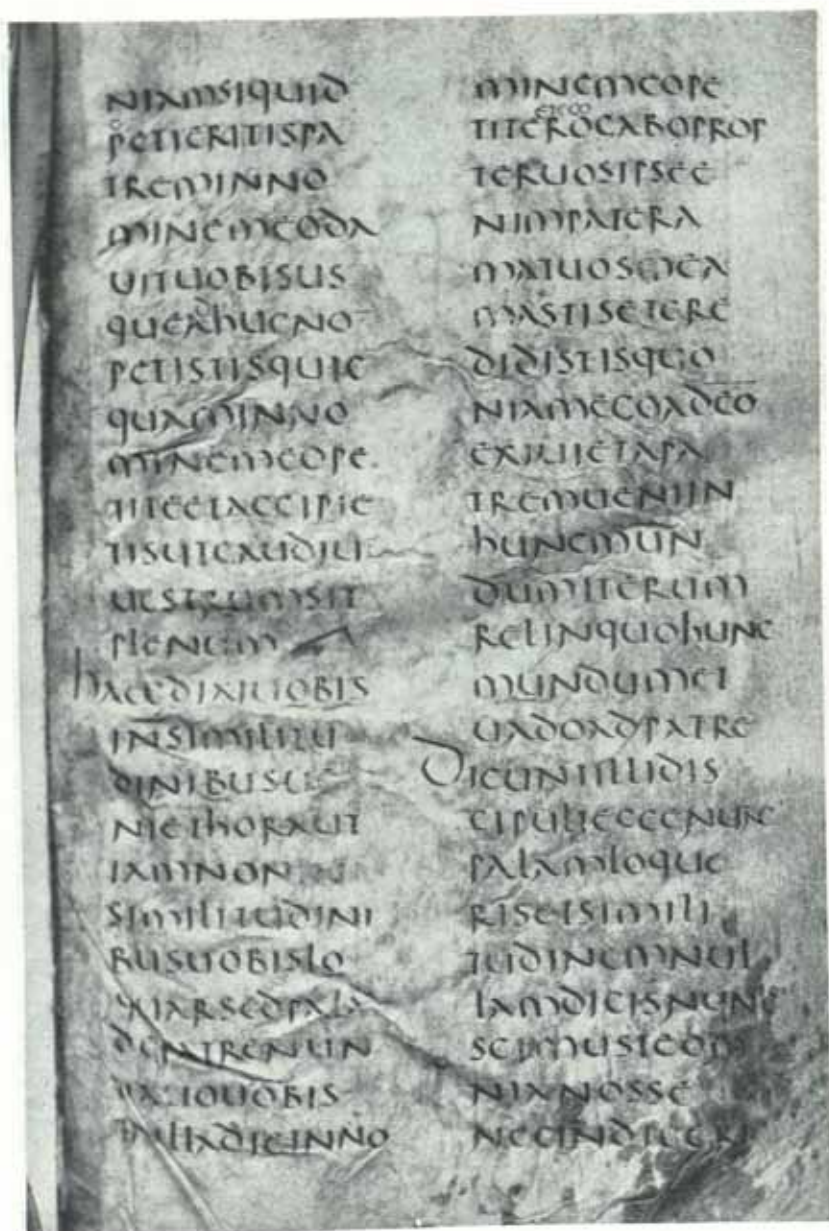 NIAMSIQUID
PETIERITISPA
TREMINNO
MINEMEODA
UITUOBISUS
QUEADHUCNO
PETISTISQUIC
QUAMINNO
MINEMEOPE
TITEETACCIPIE
TISUTGAUDIU
UESTRUMSIT
PLENUM
HAECDIXIUOBIS
INSIMILITU
DINIBUSUE
NIETHORAUT
IAMNON
SIMILITUDINI
BUSUOBISLO
QUIARSEDPALA
DEPATRENUN
UOBIS
ILLADIEINNO
MINEMEOPE
etego
TITEROGABOPROP
TERUOSIPSEE
NIMPATERA
MATUOSMEA
MASTISETCRE
DIDISTISQUO
NIAMEGOADEO
EXIUIETAPA
TREMUENIIN
HUNCMUN
DUMITERUM
RELINQUOHUNC
MUNDUMET
UADOADPATRE
DICUNTILLIDIS
CIPULIECCENUNC
PALAMLOQUE
RISETSIMILI
TUDINEMNUL
LAMDICISNUNC
SCIMUSTEOM
NIANOSSE
NECINDIGERE